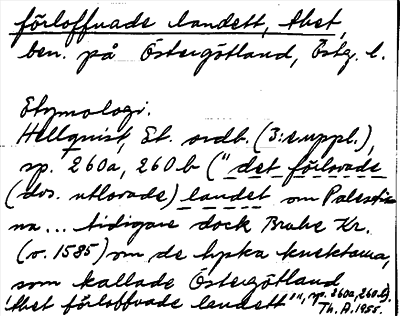 förloffuade landett, thet,
ben. på Östergötland, Östg. l.
Etymologi.
Hellquist, Et. ordb. (3:e uppl.),
sp. 260a, 260b ("det förlovade
(dvs. utlovade) landet om Palesti-
na... tidigare dock Brahe Kr.
(o. 1585) om de tyska knektarna,
som kallade Östergötland
'thet förloffuade landett'", sp. 260a, 260b).
Th. A. 1955.